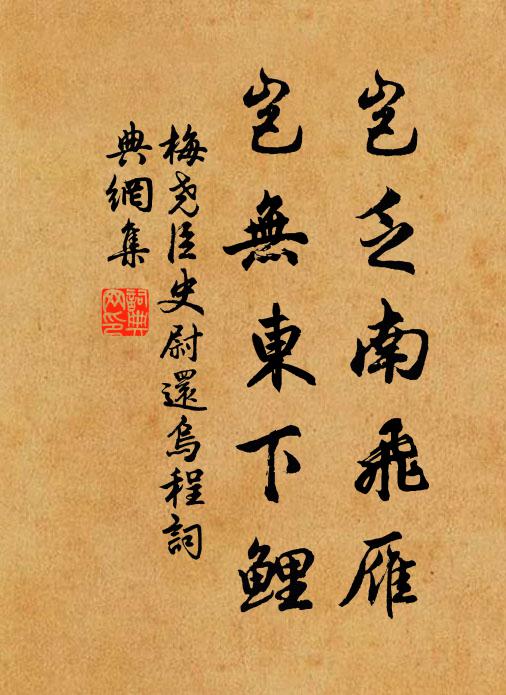 岂乏南飛雁
岂無東下鯉
梅堯臣史尉還烏程詞
典網集
詞典網印